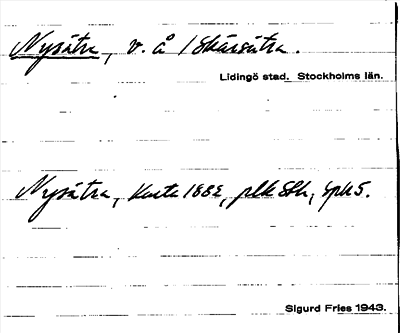 Nysätra, v. å / Skärsätra.
Lidingö stad. Stockholms län.
Nysätra, Karta 1882, plk Sth,
Sigurd Fries 1943.